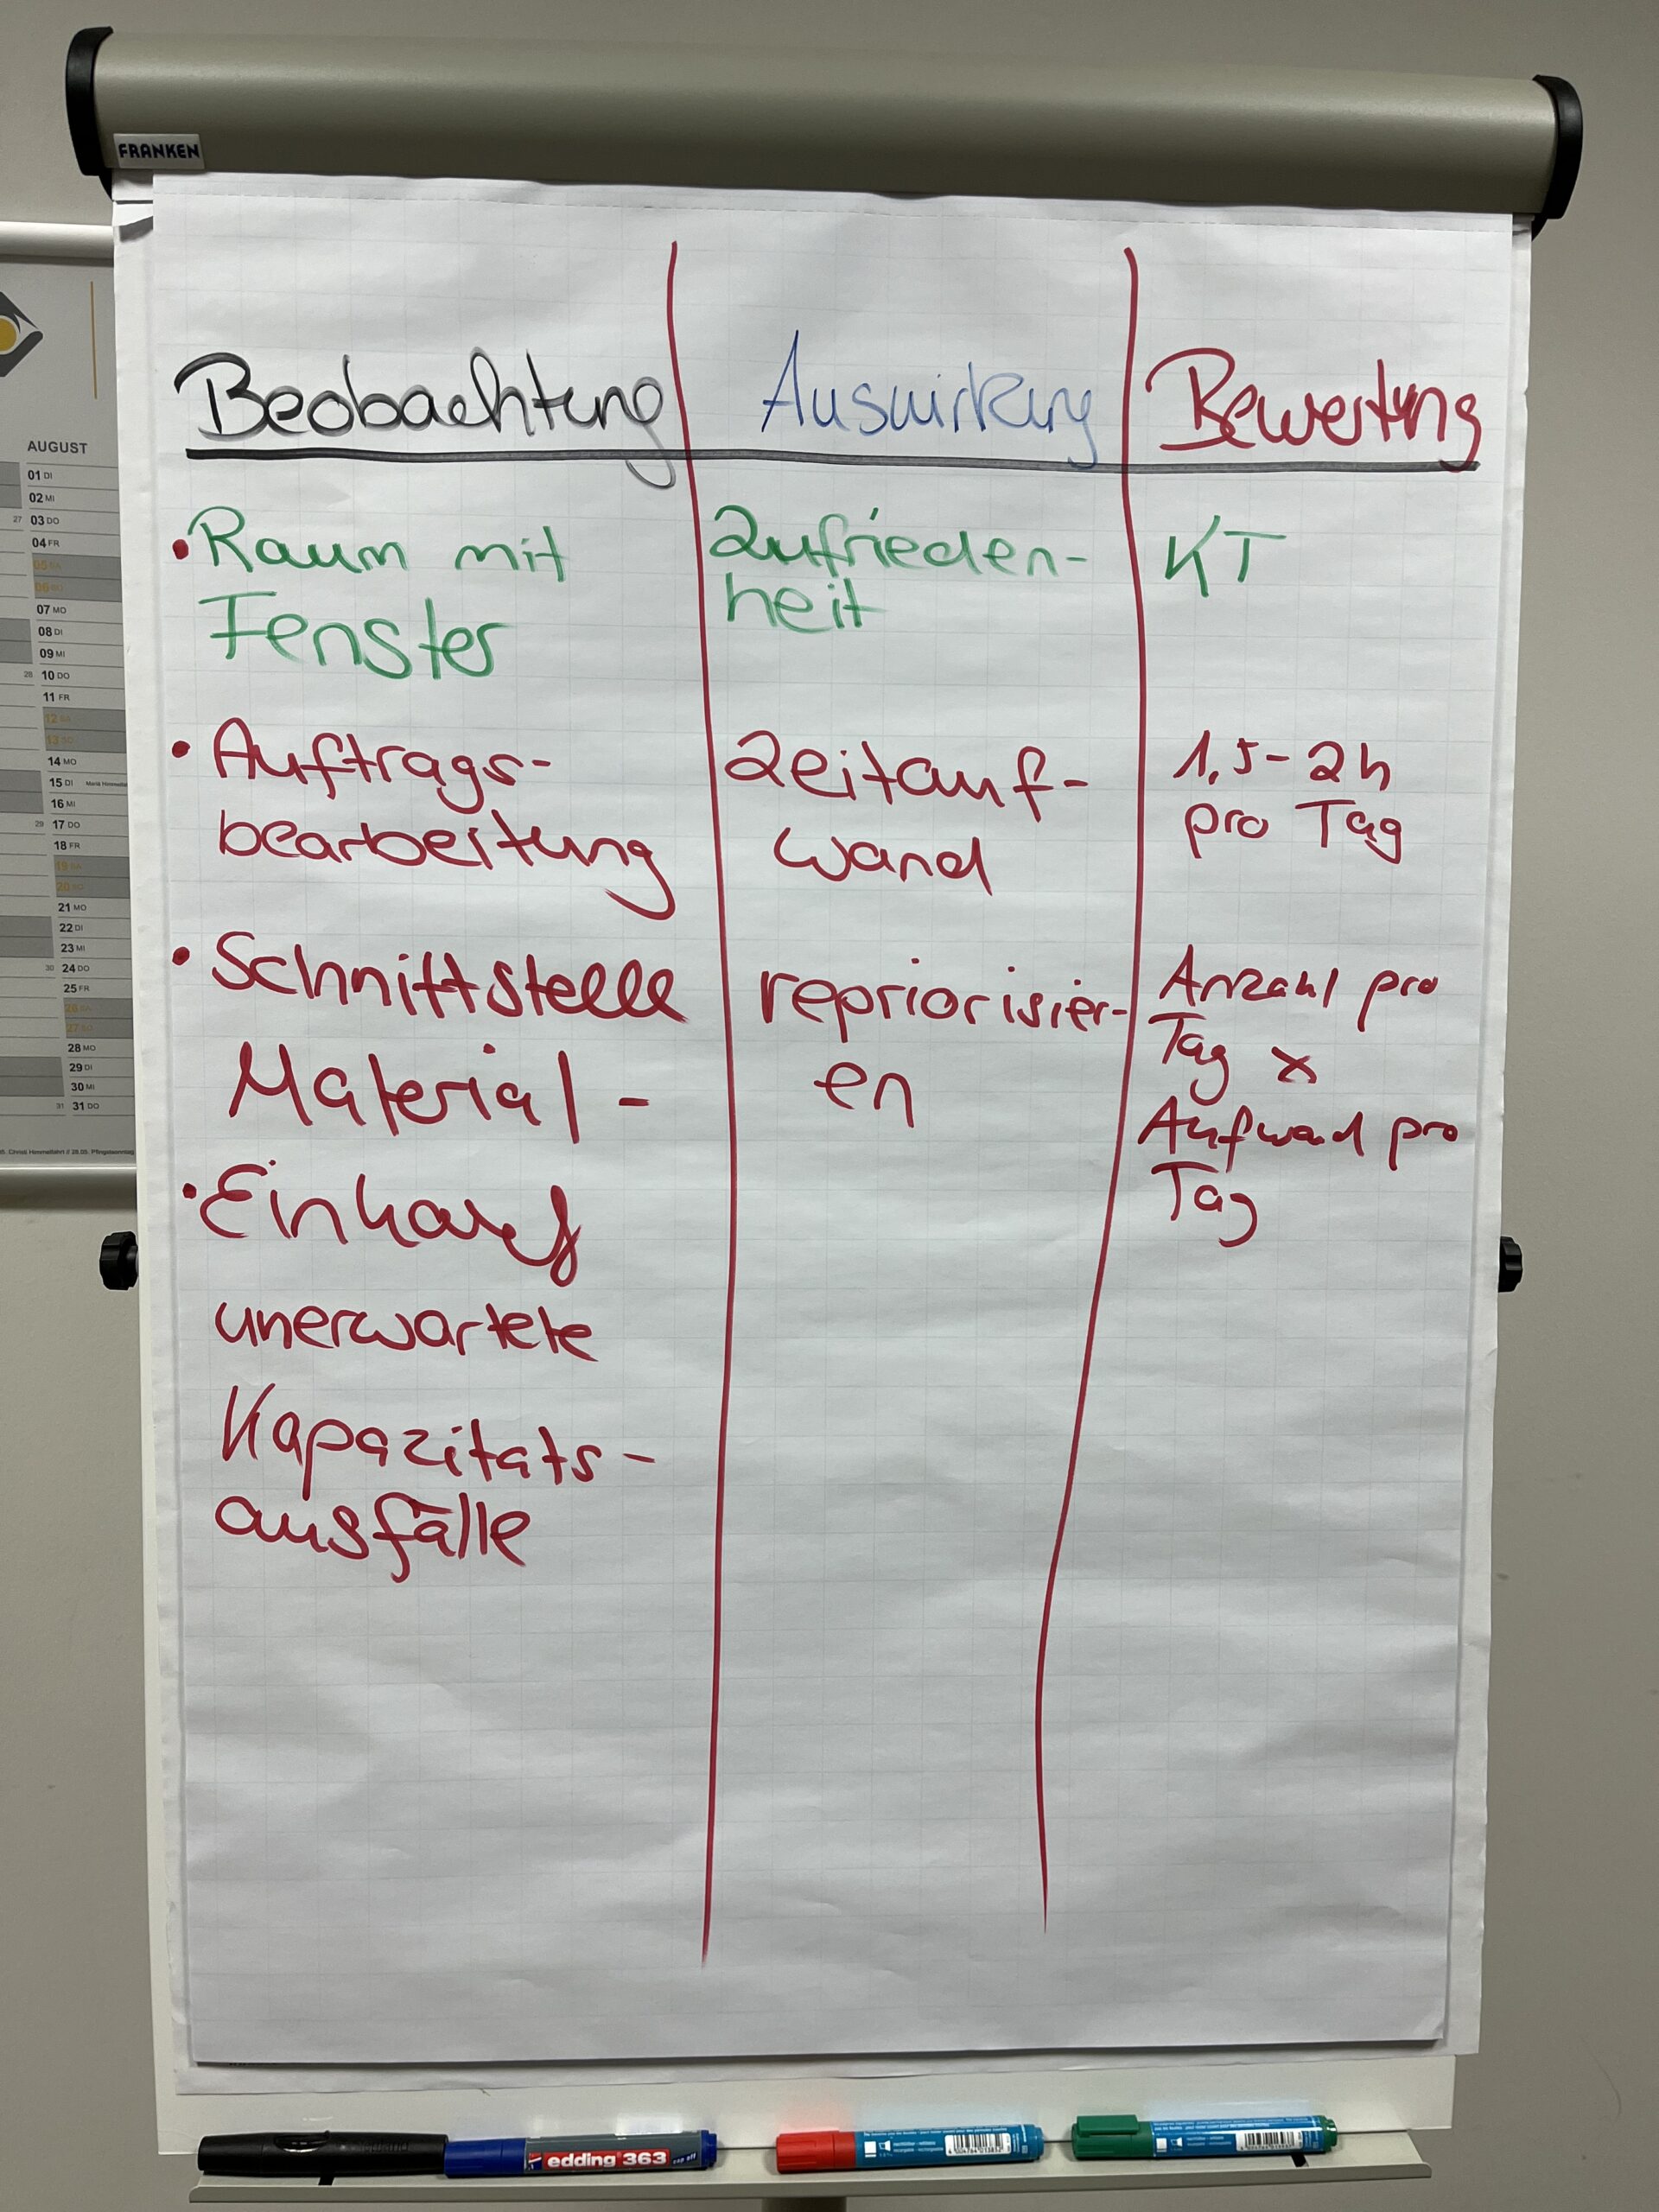 FRANKEN
Beobachtung Auswirkung Bewertung
• Raum mit
Fenster
Zufrieden-
heit
KT
• Auftrags-
bearbeitung
Zeitauf-
wand
1,5 - 2h
pro Tag
• Schnittstelle
Material -
repriorisier-
en
Anzahl pro
Tag x
Aufwand pro
Tag
• Einkauf
unerwartete
Kapazitats-
ausfälle
AUGUST
01 DI
02 MI
27 03 DO
04 FR
05 SA
06 SO
07 MO
08 DI
09 MI
28 10 DO
11 FR
12 SA
13 SO
14 MO
15 DI
16 MI
29 17 DO
18 FR
19 SA
20 SO
21 MO
22 DI
23 MI
30 24 DO
25 FR
26 SA
27 SO
28 MO
29 DI
30 MI
31 31 DO
Christi Himmelfahrt // 28.05. Pfingstsonntag
edding 363